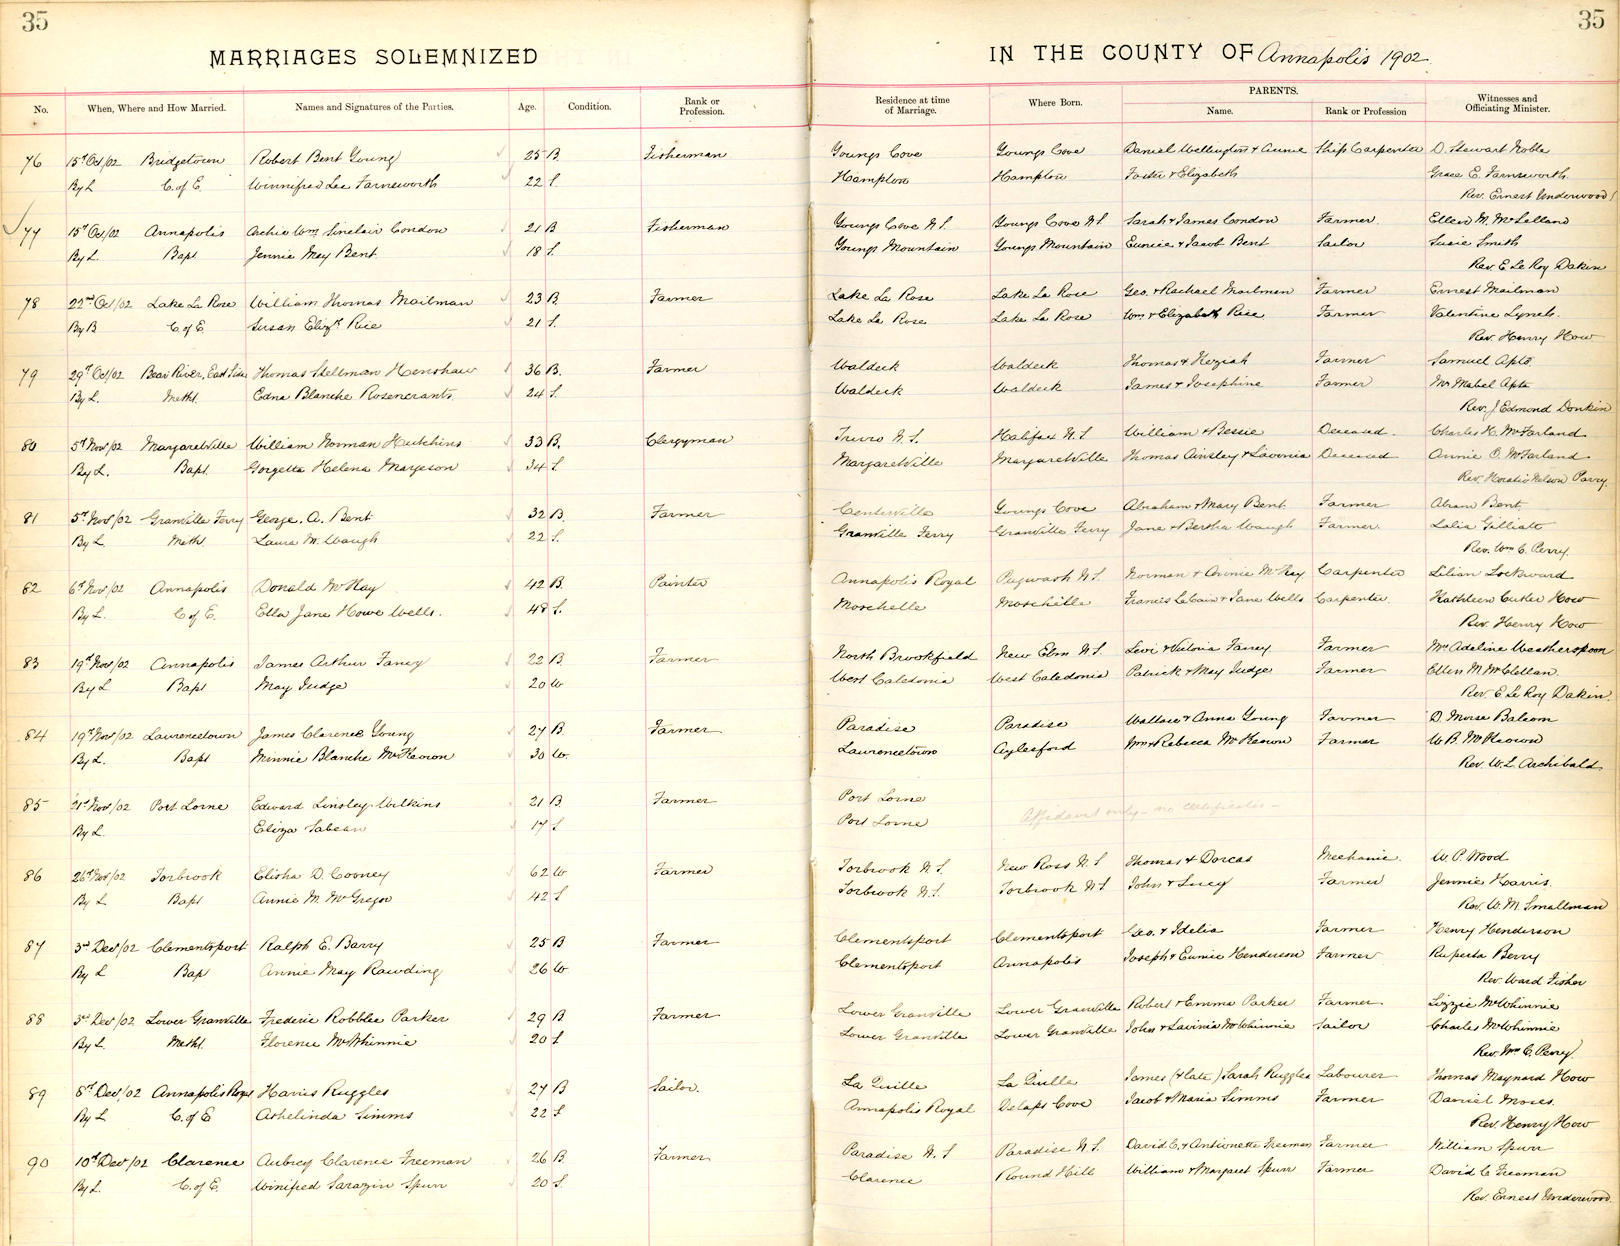 35
35
MARRIAGES SOLEMNIZED
IN THE COUNTY OF Annapolis 1902
No. When, Where and How Married. Names and Signatures of the Parties. Age. Condition. Rank or Profession. Residence at time of Marriage. Where Born. PARENTS. Name. Rank or Profession Witnesses and Officiating Minister.
76 15th Oct/02 Bridgetown Robert Bent Young 25 B. Fisherman Youngs Cove Youngs Cove Daniel Wellington & Annie Ship Carpenter D. Stewart Noble
By L C. of E. Winnifred Lee Farnsworth 22 S. Hampton Hampton Foster & Elizabeth Grace E. Farnsworth
Rev. Ernest Underwood
77 15th Oct/02 Annapolis Archie Wm Sinclair Condon 21 B Fisherman Youngs Cove N.S. Youngs Cove N.S Sarah & James Condon Farmer Ellen M. McLelland
By L. Bapt Jennie May Bent. 18 S. Youngs Mountain Youngs Mountain Eunice & Jacob Bent Sailor Susie Smith
Rev. E Le Roy Dakin
78 22nd Oct/02 Lake La Rose William Thomas Mailman 23 B. Farmer Lake La Rose Lake La Rose Geo. & Rachael Mailman Farmer Ernest Mailman
By B C. of E. Susan Elizth Rice 21 S. Lake La Rose Lake La Rose Wm & Elizabeth Rice Farmer Valentine Lynch.
Rev. Henry How
79 29th Oct/02 Bear River, East Side Thomas Stellman Henshaw 36 B. Farmer Waldeck Waldeck Thomas & Keziah Farmer Samuel Apts.
By L. Metht. Edna Blanche Rosencrants 24 S. Waldeck Waldeck James & Josephine Farmer Mrs Mabel Apts
Rev. J Edmond Donkin
80 5th Nov/02 Margaretville William Norman Hutchins 33 B. Clergyman Truro N.S. Halifax N.S William & Bessie Deceased. Charles H. McFarland
By L. Bapt Gorgetta Helena Margeson 34 S. Margaretville Margaretville Thomas Ainsley & Lavinia Deceased Annie O. McFarland
Rev. Horatio Nelson Parry.
81 5th Nov/02 Granville Ferry George. A. Bent 32 B. Farmer Centerville Youngs Cove Abraham & Mary Bent Farmer Abram Bent
By L. Meth. Laura M. Waugh 22 S. Granville Ferry Granville Ferry Jane & Bertha Waugh Farmer Lalia Gilliatt
Rev. Wm C. Perry
82 6th Nov/02 Annapolis Donald McKay 42 B. Painter Annapolis Royal Pugwash N.S. Norman & Annie McKay Carpenter Lilian Lockward
By L. C of E. Ella Jane Howe Wells. 48 S. Moschelle Moschelle Francis LeCain & Jane Wells Carpenter Kathleen Cutler How
Rev. Henry How
83 19th Nov/02 Annapolis James Arthur Fancy 22 B. Farmer North Brookfield New Elm N.S. Levi & Victoria Fancy Farmer Mrs Adeline Weatherspoon
By L Bapt May Judge 20 W West Caledonia West Caledonia Patrick & May Judge Farmer Ellen M McClellan
Rev. E Le Roy Dakin.
84 19th Nov/02 Laurencetown James Clarence Young 27 B. Farmer Paradise Paradise Wallace & Anna Young Farmer D. Morse Balcom
By L. Bapt Minnie Blanche McKeown 30 W. Laurencetown Aylesford Wm & Rebecca McKeown Farmer W. B. McKeown
Rev. W. L. Archibald
85 21st Nov/02 Port Lorne Edward Linsley Wilkins 21 B Farmer Port Lorne Affidavit only - no certificate -
By L. Eliza Sabean 17 S Port Lorne
86 26th Nov/02 Torbrook Elisha D. Cooney 62 W Farmer Torbrook N.S. New Ross N.S Thomas & Dorcas Mechanic. W. P. Wood
By L Bapt Annie M. McGregor 42 S Torbrook N.S. Torbrook N.S John & Lucy Farmer Jennie Harris
Rev. W. M. Smallman
87 3rd Dec/02 Clementsport Ralph E. Barry 25 B Farmer Clementsport Clementsport Geo. & Idelia Farmer Henry Henderson
By L Bap Annie May Rawding 26 W Clementsport Annapolis Joseph & Eunice Henderson Farmer Ruperta Berry
Rev. Ward Fisher
88 3rd Dec/02 Lower Granville Frederic Robblee Parker 29 B Farmer Lower Granville Lower Granville Robert & Emma Parker Farmer Lizzie McWhinnie
By L. Metht. Florence McWhinnie 20 S Lower Granville Lower Granville John & Lavinia McWhinnie Sailor Charles McWhinnie
Rev. Wm C. Perry
89 8th Dec/02 Annapolis Royal Harris Ruggles 27 B Sailor. La Quille La Quille James (& late) Sarah Ruggles Labourer Thomas Maynard How
By L C. of E Athelinda Simms 22 S Annapolis Royal Delaps Cove Jacob & Maria Simms Farmer Daniel Moses
Rev. Henry How
90 10th Dec/02 Clarence Aubrey Clarence Freeman 26 B. Farmer Paradise N.S Paradise N.S. David C. & Antionette Freeman Farmer William Spurr
By L. C. of E. Winifred Sarazin Spurr 20 S. Clarence Round Hill William & Margaret Spurr Farmer David C Freeman
Rev. Ernest Underwood.